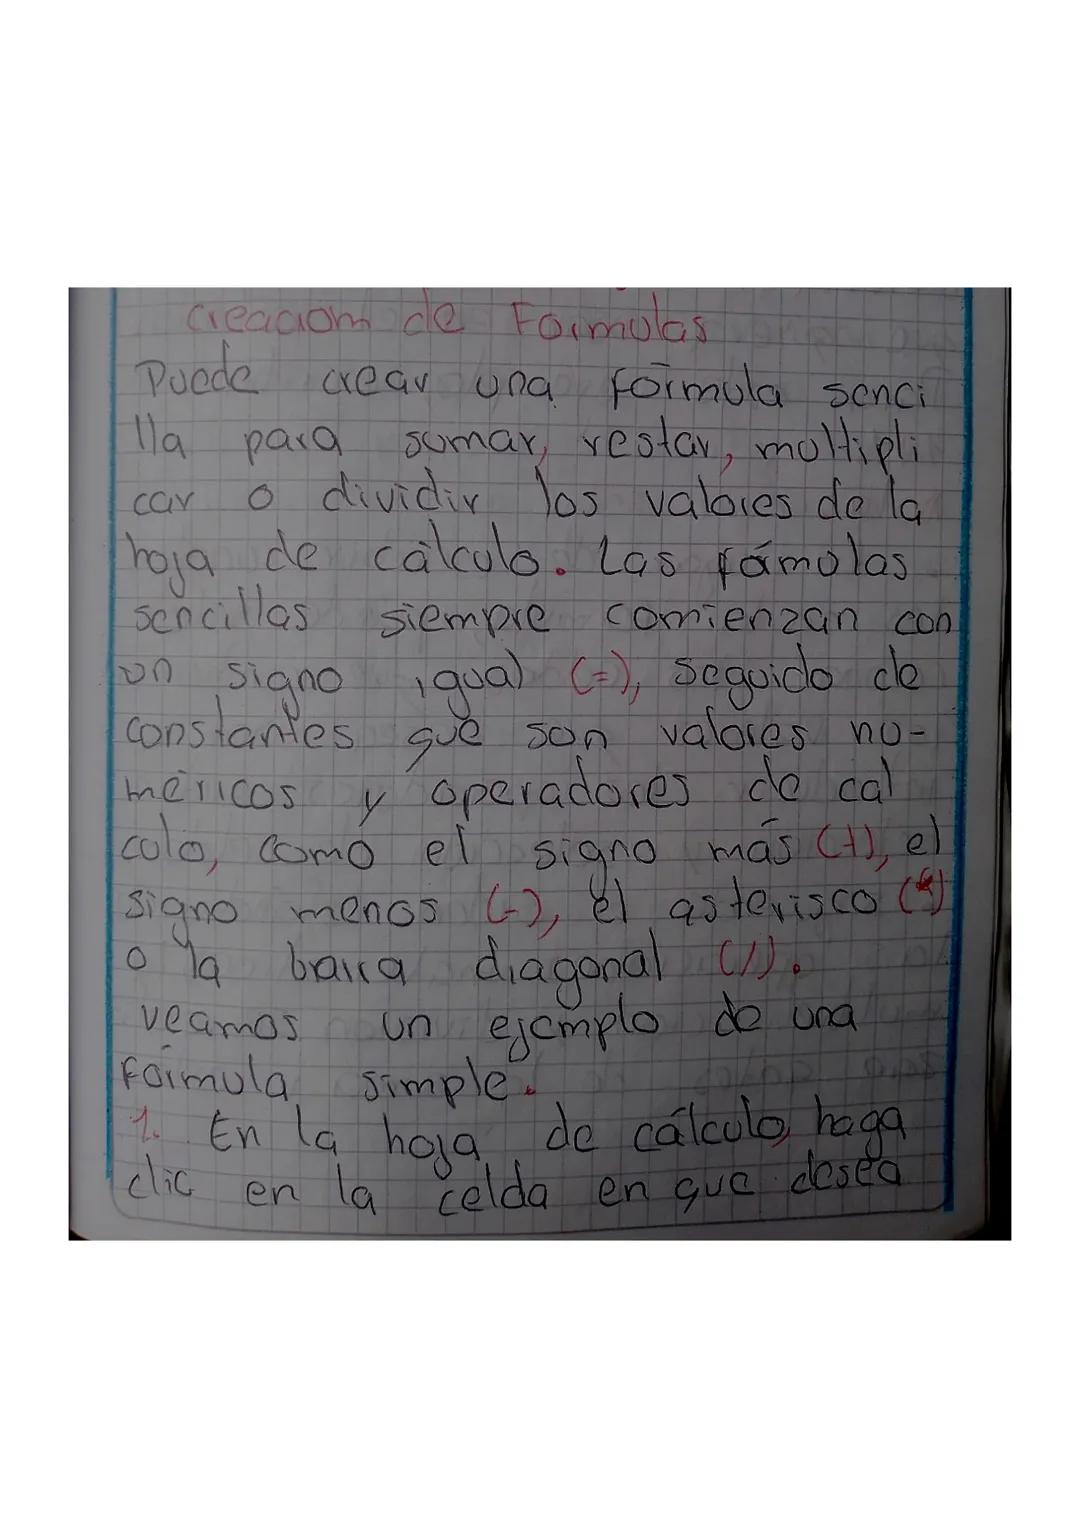 creacion de Formulas
Puede crear una fórmula senci
lla para sumar, restar, multipli
car o dividir los valores de la
hoja de cálculo. Las fórmulas
sencillas siempre comienzan con
un signo igual (=), seguido de
constantes que son valores nu-
méricos y operadores de cal
culo, como el signo más (+), el
signo menos (-), el asterisco (*)
o la barra diagonal (/).
veamos un ejemplo de una
fórmula simple.
1. En la hoja de cálculo, haga
clic en la celda en que desea